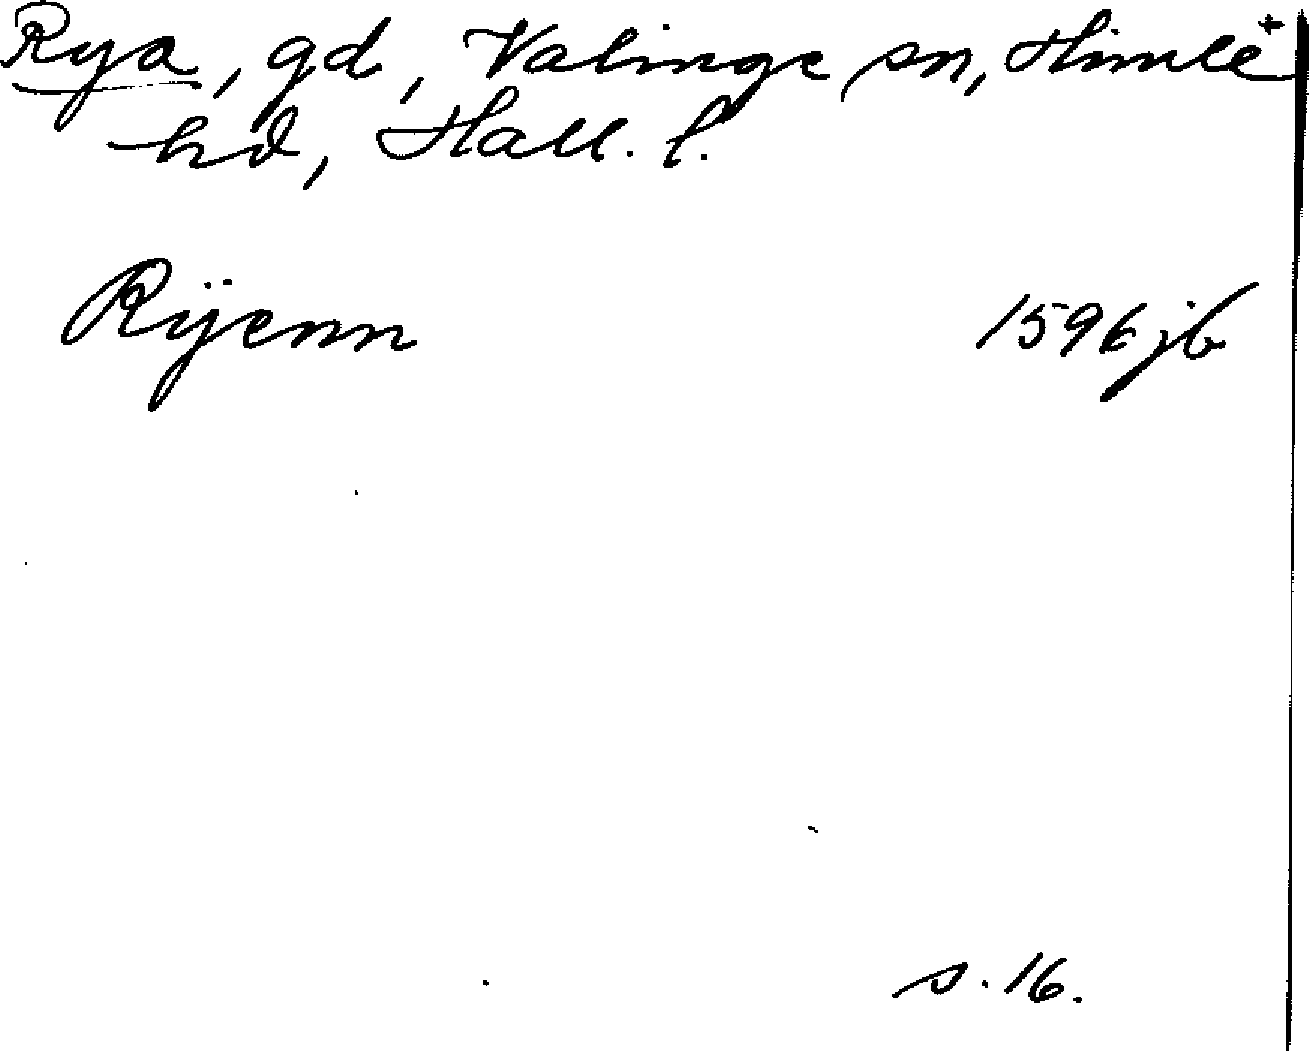 Rya, gd, Valinge sn, Himle +
hd, Hall. l.
Rÿenn 1596 jb
s. 16.